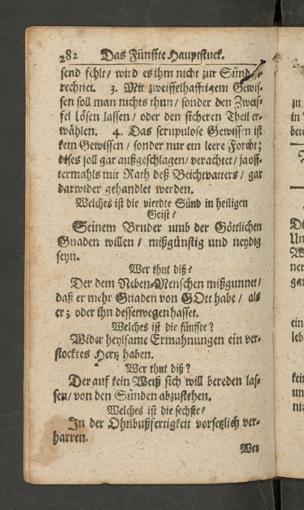 282 Das Fünffte Hauptstuck.
send fehlt / wird es ihm nicht zur Sünd ge-
rechnet. 3. Mit zweiffelhafftigem Gewis-
sen soll man nichts thun / sonder den Zweif-
fel lösen lassen / oder den sicheren Theil er-
wählen. 4. Das scrupulose Gewissen ist
kein Gewissen / sonder nur ein leere Forcht;
dises soll gar außgeschlagen / verachtet / ja öff-
termahls mit Rath deß Beichtvatters / gar
darwider gehandlet werden.
Welches ist die vierdte Sünd in heiligen
Geist?
Seinem Bruder umb der Göttlichen
Gnaden willen / mißgünstig und neydig
seyn.
Wer thut diß?
Der dem Neben-Menschen mißgunnet /
daß er mehr Gnaden von GOtt habe / als
er; oder ihn dessetwegen hasset.
Welches ist die fünffte?
Wider heylsame Ermahnungen ein ver-
stocktes Hertz haben.
Wer thut diß?
Der auf kein Weiß sich will bereden las-
sen / von den Sünden abzustehen.
Welches ist die sechste?
In der Ohnbußfertigkeit vorsetzlich ver-
harren.
Wer